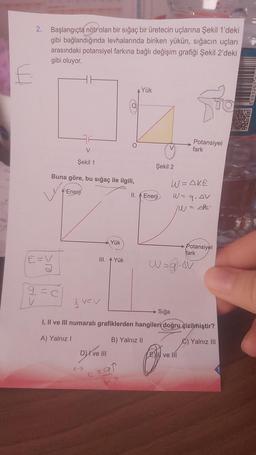 2. Başlangıçta nötr olan bir sığaç bir üretecin uçlarına Şekil 1'deki
gibi bağlandığında levhalarında biriken yükün, sığacın uçları
arasındaki potansiyel farkına bağlı değişim grafiği Şekil 2'deki
gibi oluyor.
E
Yük
q
O
V
Potansiyel
fark
V
Şekil 1
Şekil 2
Buna göre, bu sığaç ile ilgili,
W = ΔKE
W = q.ΔV
I. Enerji
Yük
II. Enerji
Potansiyel
fark
W = q.ΔV
III. Yük
Sığa
E = V
d
q = C
V
I, II ve III numaralı grafiklerden hangileri doğru çizilmiştir?
A) Yalnız I
B) Yalnız II
C) Yalnız III
D) I ve III
E) II ve III